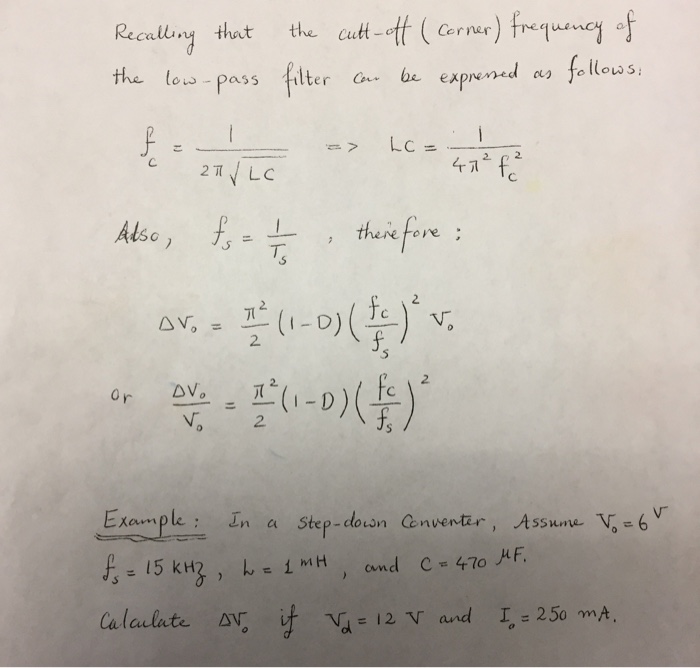 Recalling that the cutt-off (corner) frequency of
the low-pass filter can be expressed as follows:
f_c = 1 / (2π√LC) => LC = 1 / (4π² f_c²)
Also, f_s = 1 / T_s , therefore :
ΔV_o = π²/2 (1-D) (f_c / f_s)² V_o
or ΔV_o / V_o = π²/2 (1-D) (f_c / f_s)²
Example: In a step-down Converter, Assume V_o = 6 V
f_s = 15 kHz, L = 1 mH, and C = 470 μF.
Calculate ΔV_o if V_d = 12 V and I_o = 250 mA.